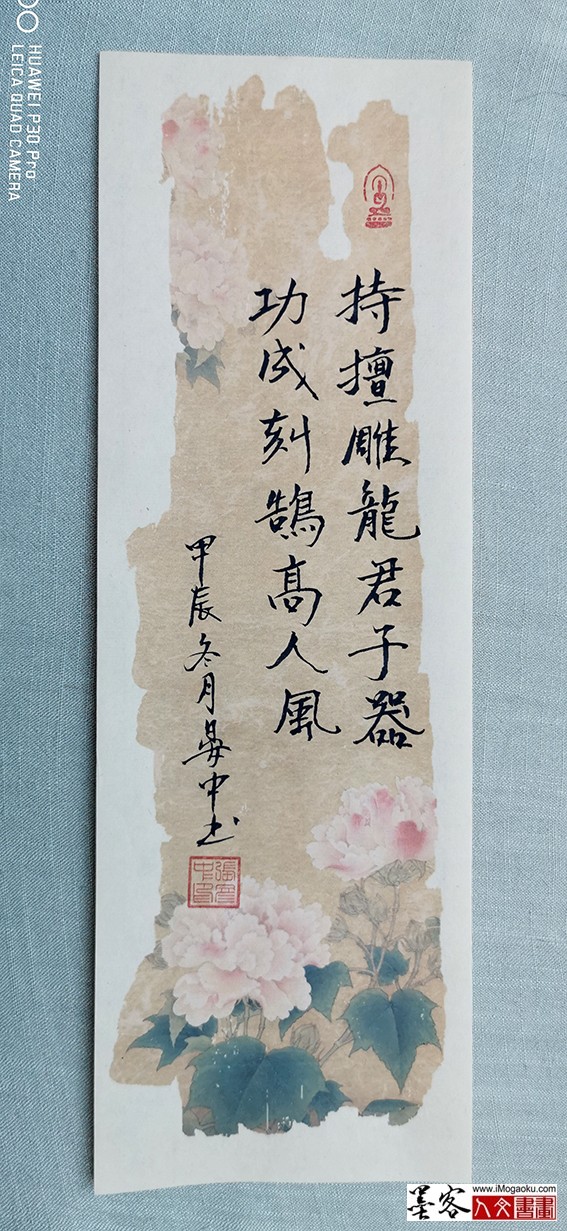 持擅雕龍君子器
功成刻鵠高人風
甲辰冬月晏中书
HUAWEI P30 Pro
LEICA QUAD CAMERA
墨客
www.iMogaoku.com
人文書畫